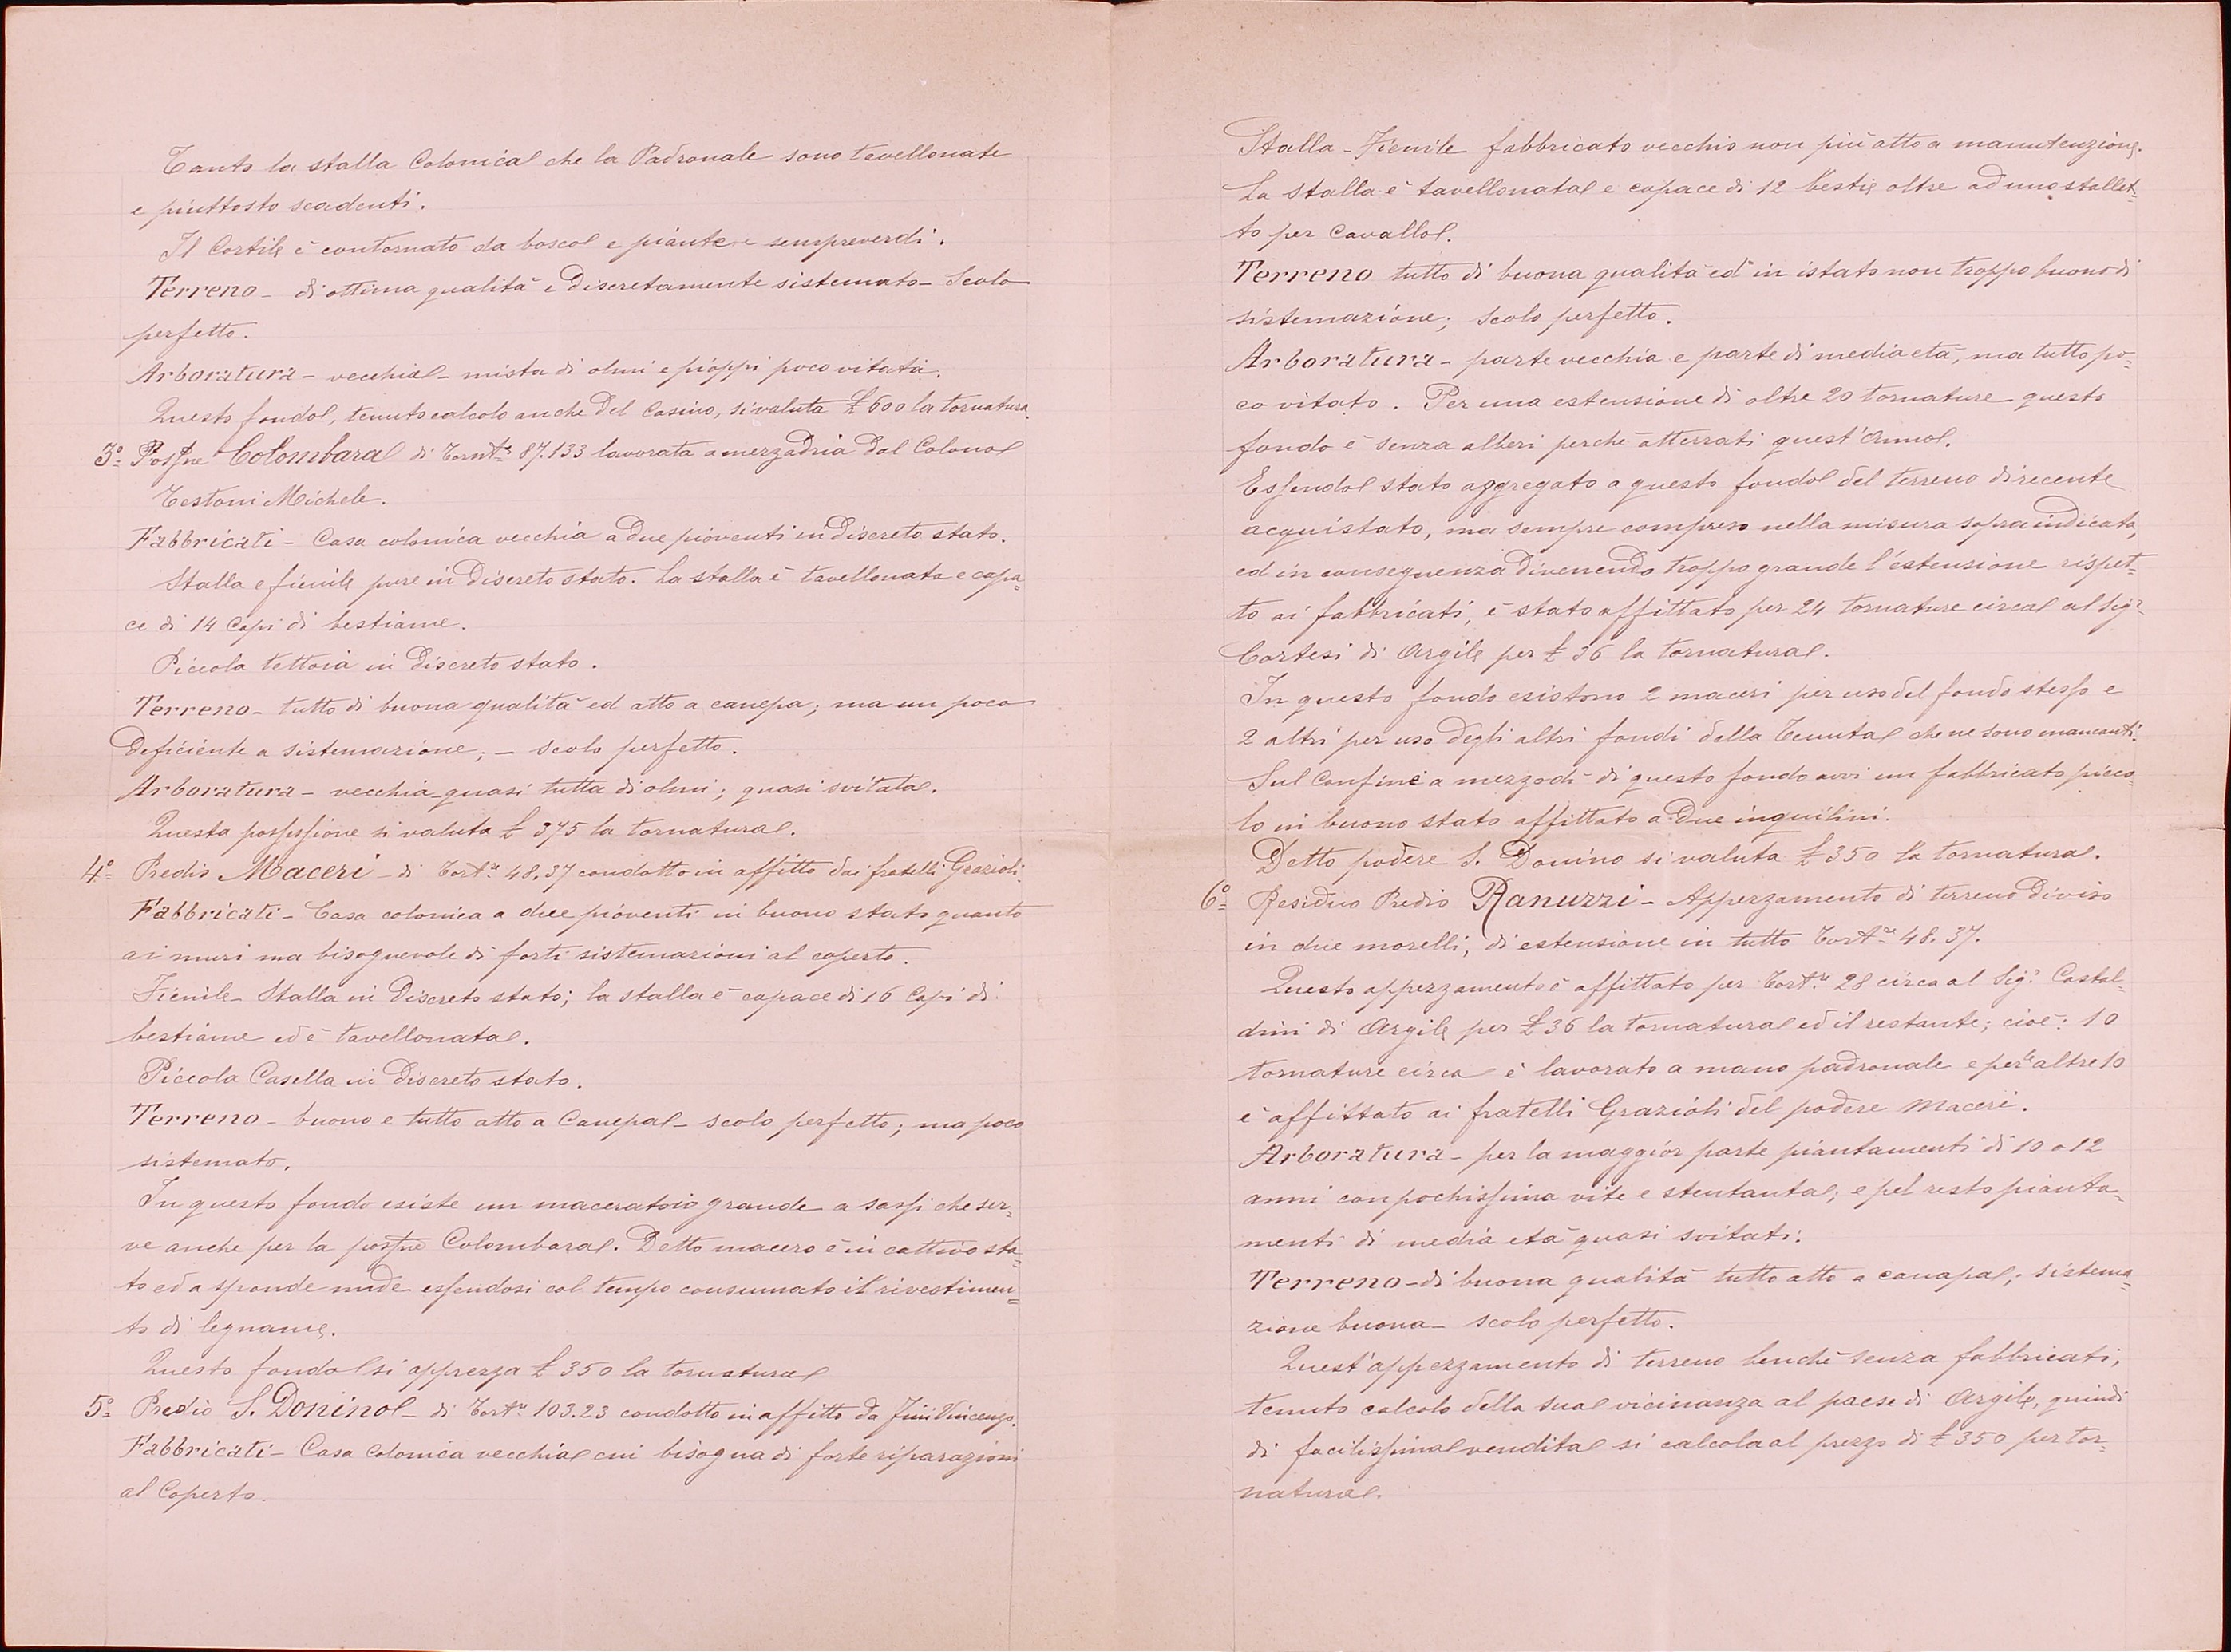 Tanto la stalla Colonica che la Padronale sono tavellonate
e piuttosto scadenti.
Il Cortile è contornato da bosco e piante sempreverdi.
Terreno - di ottima qualità e discretamente sistemato - Scolo
perfetto.
Arboratura - vecchia - mista di olmi e pioppi poco vitata.
Questo fondo, tenuto calcolo anche del Casino, si valuta £ 600 la tornatura.
3º Possne Colombara di Tornre 87.133 lavorata a mezzadria dal Colono
Testoni Michele.
Fabbricati - Casa colonica vecchia a due pioventi in discreto stato.
Stalla e fienile pure in discreto stato. La stalla è tavellonata e capa=
ce di 14 Capi di bestiame.
Piccola tettoia in discreto stato.
Terreno - tutto di buona qualità ed atto a canepa; ma un poco
deficiente a sistemazione; - scolo perfetto.
Arboratura - vecchia - quasi tutta di olmi; quasi svitata.
Questa possessione si valuta £ 375 la tornatura.
4º Predio Maceri - di Tortre 48.37 condotto in affitto dai fratelli Grazioli.
Fabbricati - Casa colonica a due pioventi in buono stato quanto
ai muri ma bisognevole di forti sistemazioni al coperto.
Fienile - Stalla in discreto stato; la stalla è capace di 16 Capi di
bestiame ed è tavellonata.
Piccola Casella in discreto stato.
Terreno - buono e tutto atto a Canepa - scolo perfetto; ma poco
sistemato.
In questo fondo esiste un maceratoio grande a sassi che ser=
ve anche per la possne Colombara. Detto macero è in cattivo sta=
to ed a sponde nude essendosi col tempo consumato il rivestimen=
to di legname.
Questo fondo si apprezza £ 350 la tornatura
5º Predio S. Donino - di Tortre 103.23 condotto in affitto da Vincenzo.
Fabbricati - Casa Colonica vecchia cui bisogna di forte riparazioni
al Coperto.
Stalla - Fienile fabbricato vecchio non più atto a manutenzione.
La stalla è tavellonata e capace di 12 bestie oltre ad uno stallet=
to per Cavallo.
Terreno tutto di buona qualità ed in istato non troppo buono di
sistemazione; scolo perfetto.
Arboratura - parte vecchia e parte di media età, ma tutto po=
co vitato. Per una estensione di oltre 20 tornature questo
fondo è senza alberi perchè atterrati quest'anno.
Essendo stato aggregato a questo fondo del terreno di recente
acquistato, ma sempre compreso nella misura sopraindicata,
ed in conseguenza divenendo troppo grande l'estensione rispet=
to ai fabbricati, è stato affittato per 24 tornature circa al Sigr
Cortesi di Argile per £ 36 la tornatura.
In questo fondo esistono 2 maceri per uso del fondo stesso e
2 altri per uso degli altri fondi della Tenuta che ne sono mancanti.
Sul confine a mezzodì di questo fondo avvi un fabbricato picco=
lo in buono stato affittato a due inquilini.
Detto podere S. Donino si valuta £ 350 la tornatura.
6º Residuo Predio Ranuzzi - Appezzamento di terreno diviso
in due morelli, di estensione in tutto Tortre 48.37.
Questo appezzamento è affittato per Tortre 28 circa al Sigr Castal=
dini di Argile per £ 36 la tornatura ed il restante; cioè: 10
tornature circa è lavorato a mano padronale e per le altre 10
è affittato ai fratelli Grazioli del podere Maceri.
Arboratura - per la maggior parte piantamenti di 10 o 12
anni con pochissima vite e stentanta; e pel resto pianta=
menti di media età quasi svitati.
Terreno - di buona qualità tutto atto a canapa; sistema=
zione buona - scolo perfetto.
Quest'appezzamento di terreno benchè senza fabbricati,
tenuto calcolo della sua vicinanza al paese di Argile, quindi
di facilissima vendita si calcola al prezzo di £ 350 per tor=
natura.